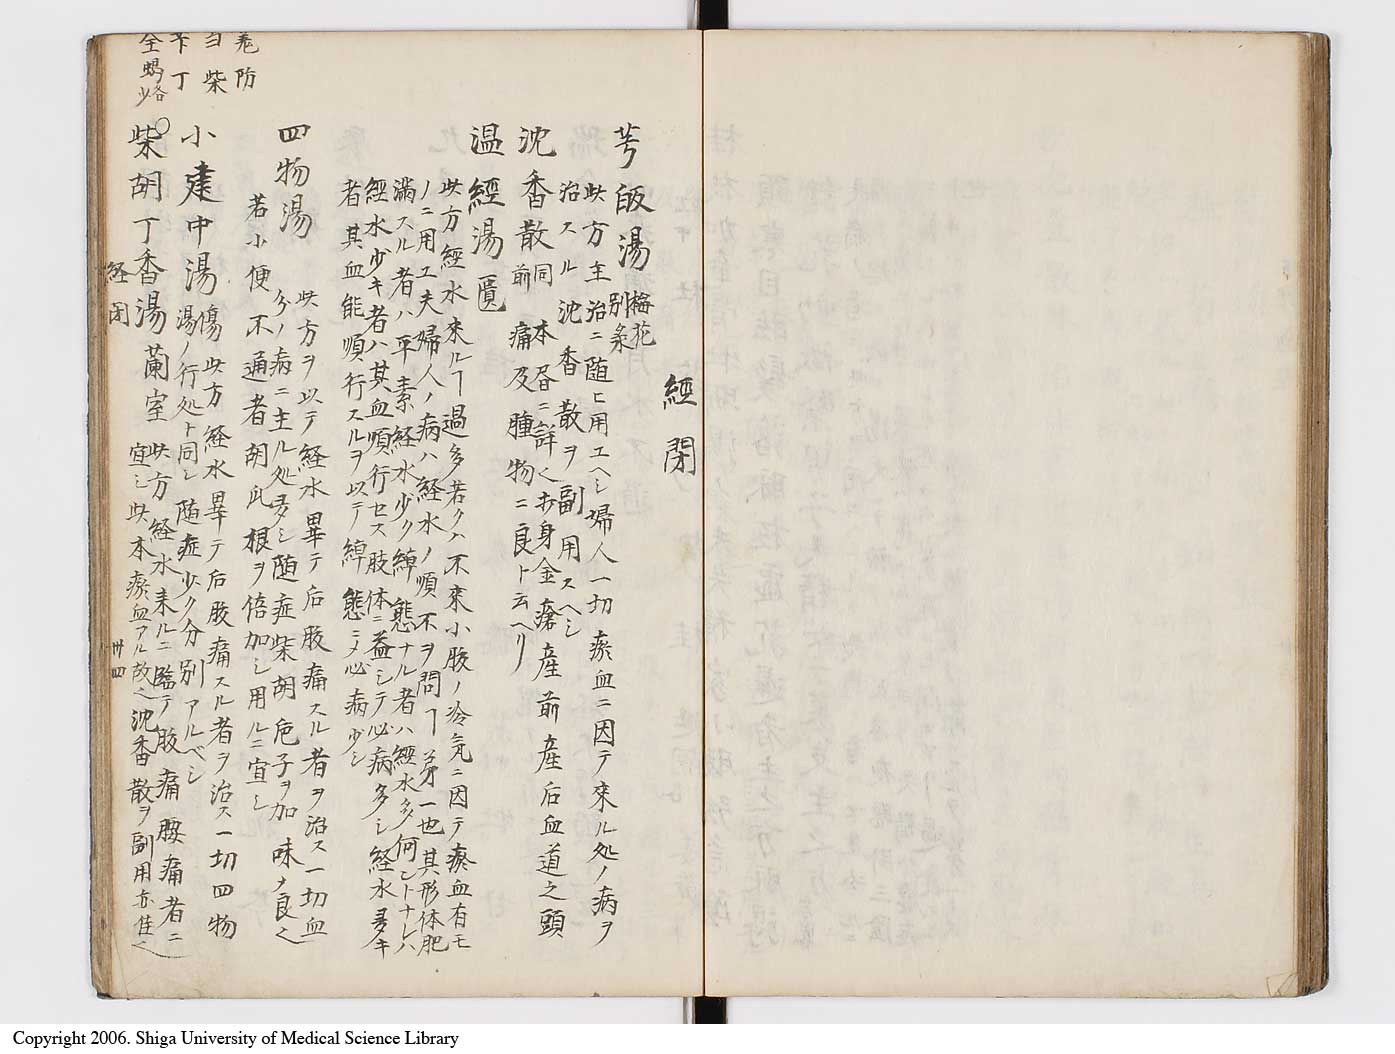 經閉
芎皈湯 梅花 別条
此方主治ニ随ヒ用エヘシ婦人一切瘀血ニ因テ來ル処ノ病ヲ
治スル沈香散ヲ副用スヘシ
沈香散 同前 本昏ニ詳く歩身金瘡産前産后血道之頭
痛及腫物ニ良ト云ヘリ
温經湯 匱
此方經水來ルヿ過多若クハ不來小腹ノ冷気ニ因テ瘀血有モ
ノニ用エ夫婦人ノ病ハ經水ノ順不ヲ問ヿ第一也其形体肥
満スル者ハ平素経水少ク綽態ナル者ハ經水多何ントナレハ
経水少キ者ハ其血順行セス肢体ニ益シテ必病多シ経水多キ
者其血能順行スルヲ以テ綽態ニメ必病少シ
四物湯
此方ヲ以テ経水畢テ后腹痛スル者ヲ治ス一切血
分ノ病ニ主ル処多シ随症柴胡梔子ヲ加味メ良之
若小便不通者胡此根ヲ倍加シ用ルニ宜シ
小建中湯 傷
此方経水畢テ后腹痛スル者ヲ治ス一切四物
湯ノ行処ト同シ随症少ク分別アルベシ
柴胡丁香湯 蘭室
此方経水来ルニ臨テ腹痛腰痛者ニ
宜シ此本瘀血アル故之沈香散ヲ副用亦佳之
羌防
ヨ柴
卞丁
全蝎
経閉
卅四
Copyright 2006. Shiga University of Medical Science Library